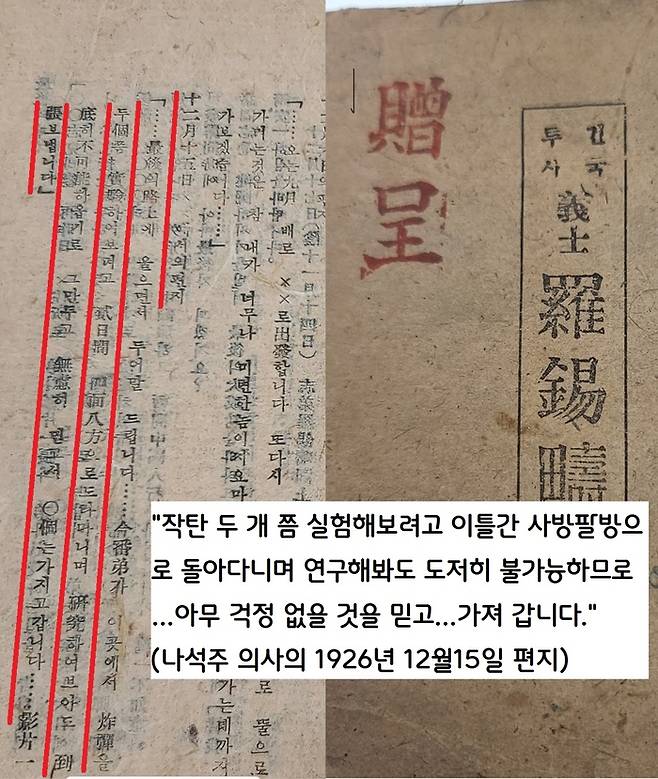 「……오는光明배로 ××로出發합니다 또다시
가려는것은 참 내가 너무나 미련한놈이지요마
가보겠습니다……」
十二月十五日
「……最後의路上에 울으면서 두어말 드립니다……今番弟가 이곳에서 炸彈을
두個쯤 實驗하여보려고 貳日間 四面八方으로도라다니며 硏究하여보아도 到
底히不可能하옵기로 그만두고 無慮히 믿고서 〇個는가지고갑니다……影片一
張보냅니다」
贈呈
건국
투사
義士 羅錫疇
"작탄 두 개 쯤 실험해보려고 이틀간 사방팔방으
로 돌아다니며 연구해봐도 도저히 불가능하므로
...아무 걱정 없을 것을 믿고...가져 갑니다."
(나석주 의사의 1926년 12월15일 편지)